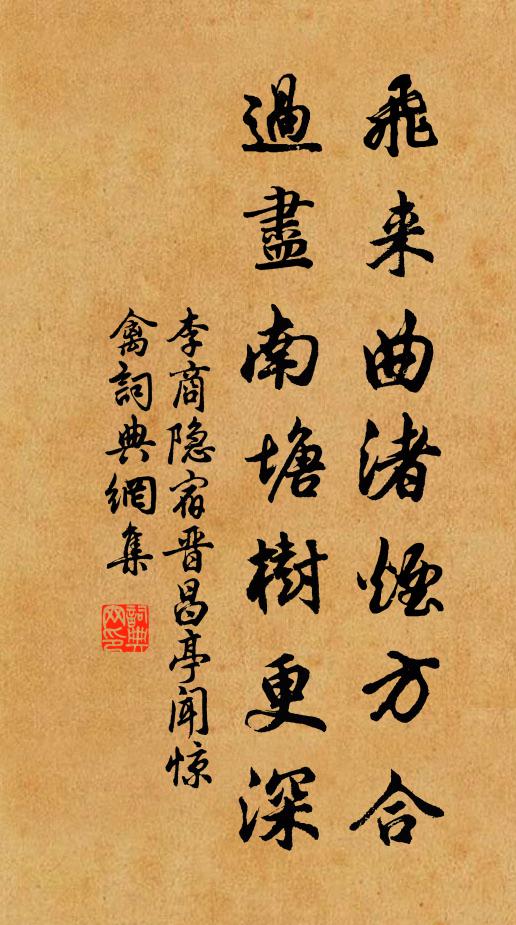 飛来曲渚煙方合
過盡南塘樹更深
李商隐宿晋昌亭闻惊
禽詞典網集
詞典网印